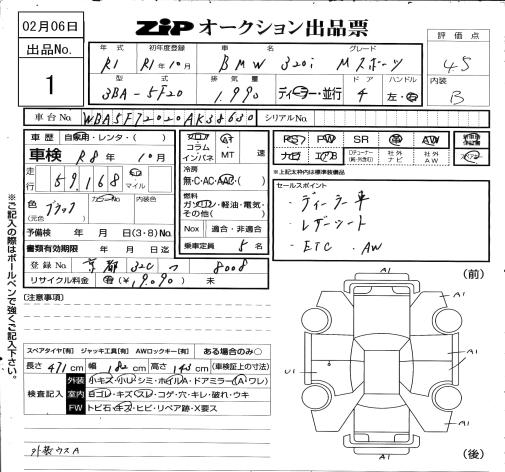 02月06日
ZiP オークション出品票
出品No.
1
評価点
4.5
内装
B
年式
初年度登録
車名
グレード
R1
R1年10月
BMW 320i Mスポーツ
型式
排気量
ドア
ハンドル
3BA-5F20
1,990
ディーラー・並行
4
左・右
車台No.
WBA5F72020AK38680
シリアルNo.
車歴
自家用・レンタ・( )
車検
R8年10月
走行
59,168
Km
マイル
色
(元色)
ブラック
カラーNo.
内装色
予備検 年 月 日(3・8)No.
書類有効期限 年 月 日迄
登録No.
京都 32C つ 8008
リサイクル料金
有(¥19,090) 未
フロア
コラム
インパネ
AT
・
MT
速
冷房
無・C・AC・AAC・( )
燃料
ガソリン・軽油・電気・
その他( )
Nox
適合・非適合
乗車定員
5名
PS
PW
SR
革
AW
ナビ
エアB
Dチューナー
社外
ナビ
社外
AW
★上記太枠内は標準装備品
セールスポイント
・ディーラー車
・レザーシート
・ETC . AW
[注意事項]
スペアタイヤ[有] ジャッキ工具[有] AWロックキー[有] ある場合のみ○
長さ 471cm 幅 182cm 高さ 143cm (車検証上の寸法)
検査記入
外装
小キズ・小U・シミ・ホイルA・ドアミラー(A・ワレ)
室内
白コレ・キズ・スレ・コゲ・穴・キレ・破れ・ウキ
FW
トビ石・キズ・ヒビ・リペア跡・X要ス
外装ウスA
(前)
A1
A1
A1
U1
A1
A1
(後)
※ご記入の際はボールペンで強くご記入下さい。